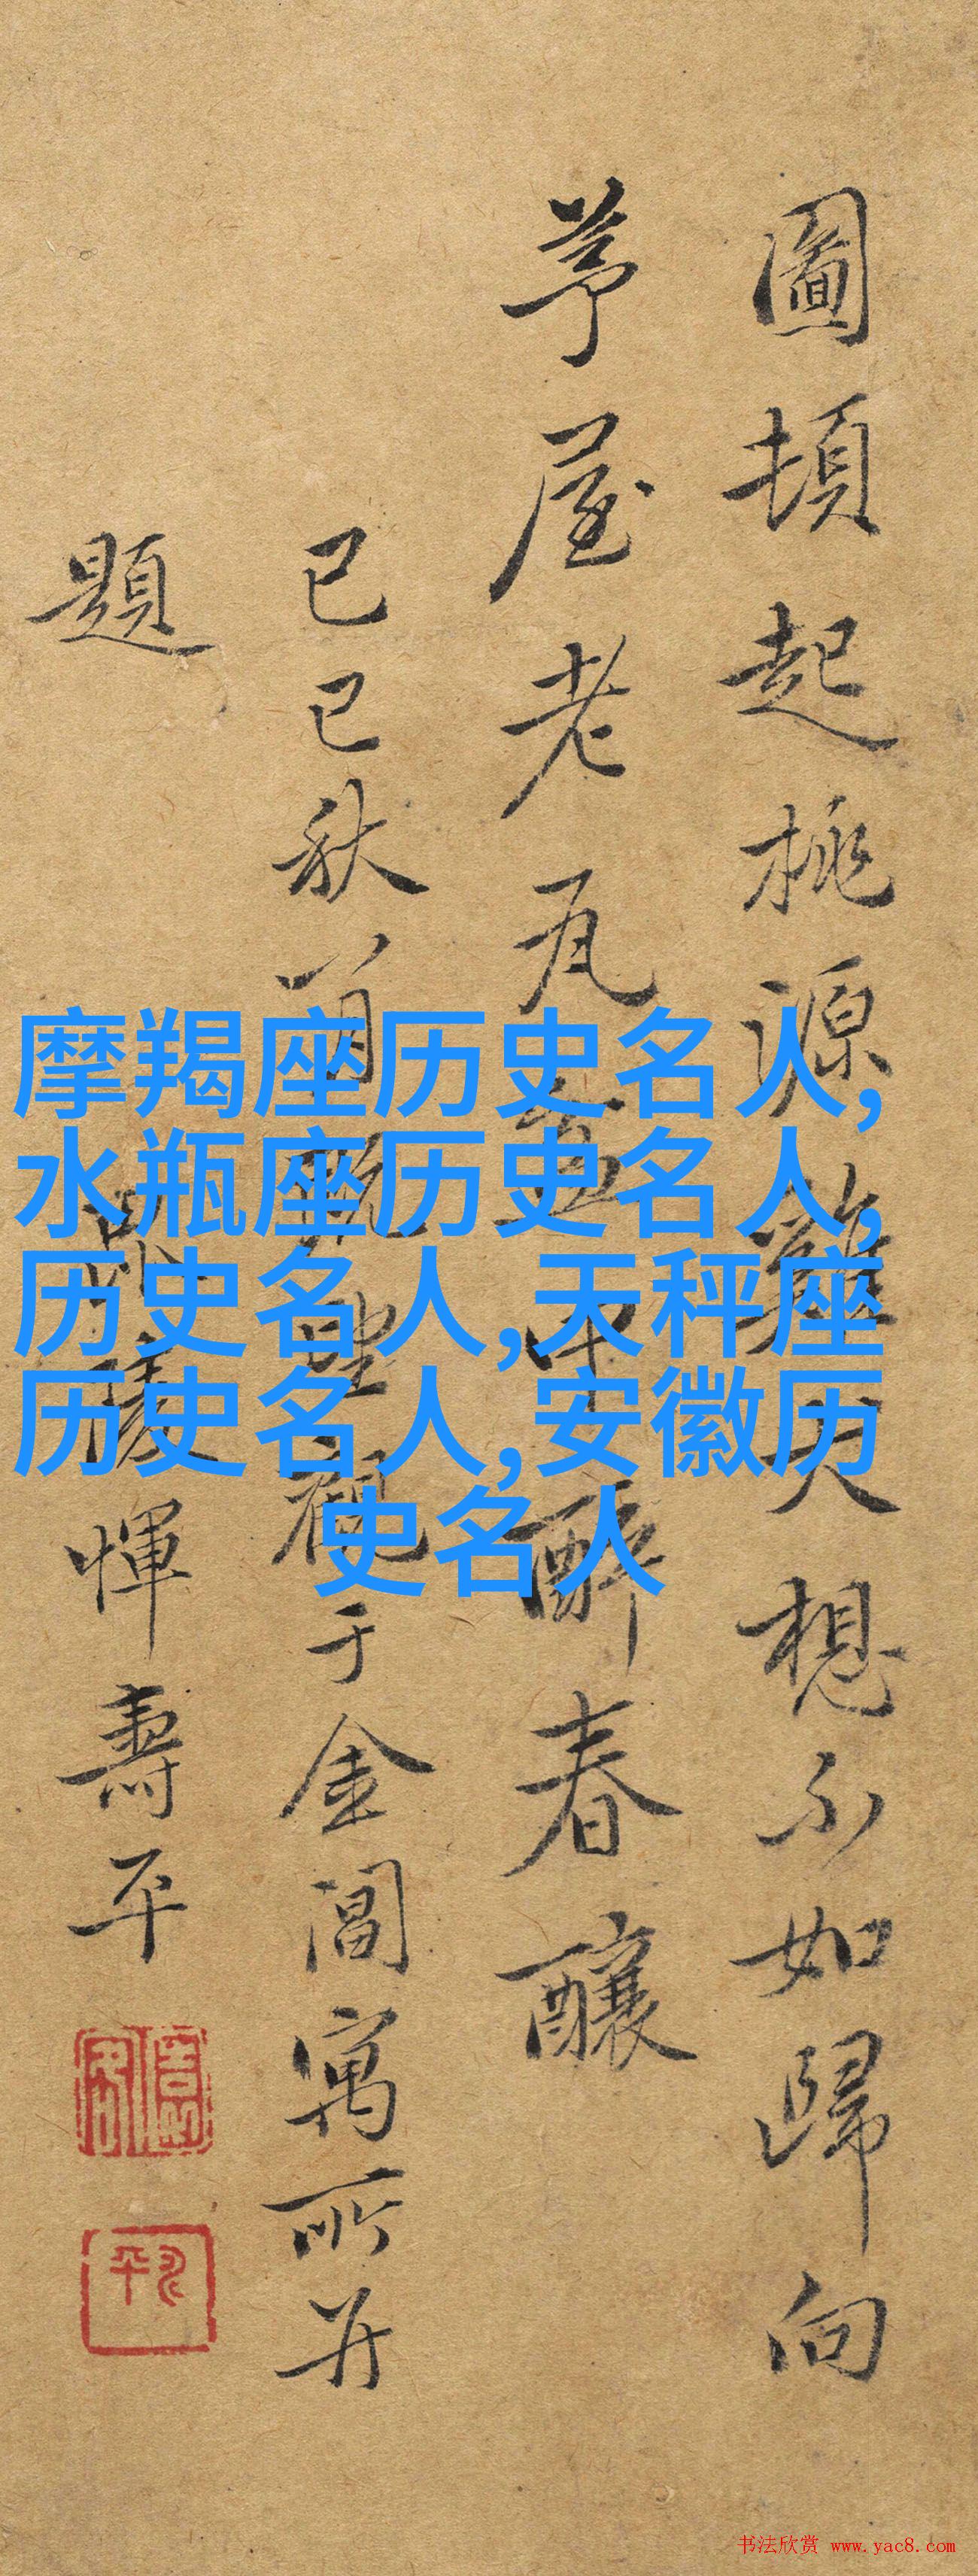 圖頓起桃源雞犬想不如歸向
茅屋老瓦盆中醉春釀
己巳秋萌觀于金閶寓所并
題
惲壽平
摩羯座历史名人,
水瓶座历史名人,
历史名人,天秤座
历史名人,安徽历
史名人
书法欣赏 www.yac8.com